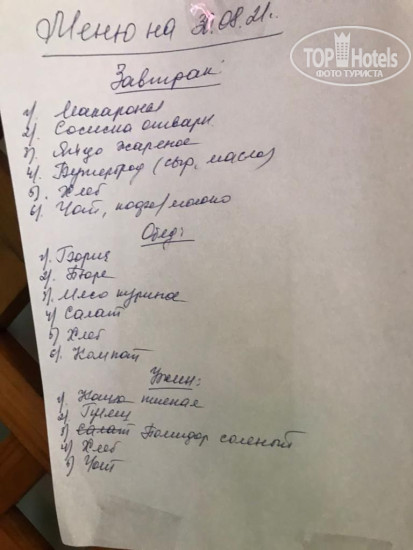 TOP Hotels
ФОТО ТУРИСТА
Меню на 31.08.21г.
Завтрак:
1) Макароны
2) Сосиска отварн.
3) Яйцо жареное
4) Бутерброд (сыр, масло)
5) Хлеб
6) Чай, кофе/молоко
Обед:
1) Борщ
2) Пюре
3) Мясо куриное
4) Салат
5) Хлеб
6) Компот
Ужин:
1) Каша пшеная
2) Гуляш
3) Салат Помидор соленый
4) Хлеб
5) Чай